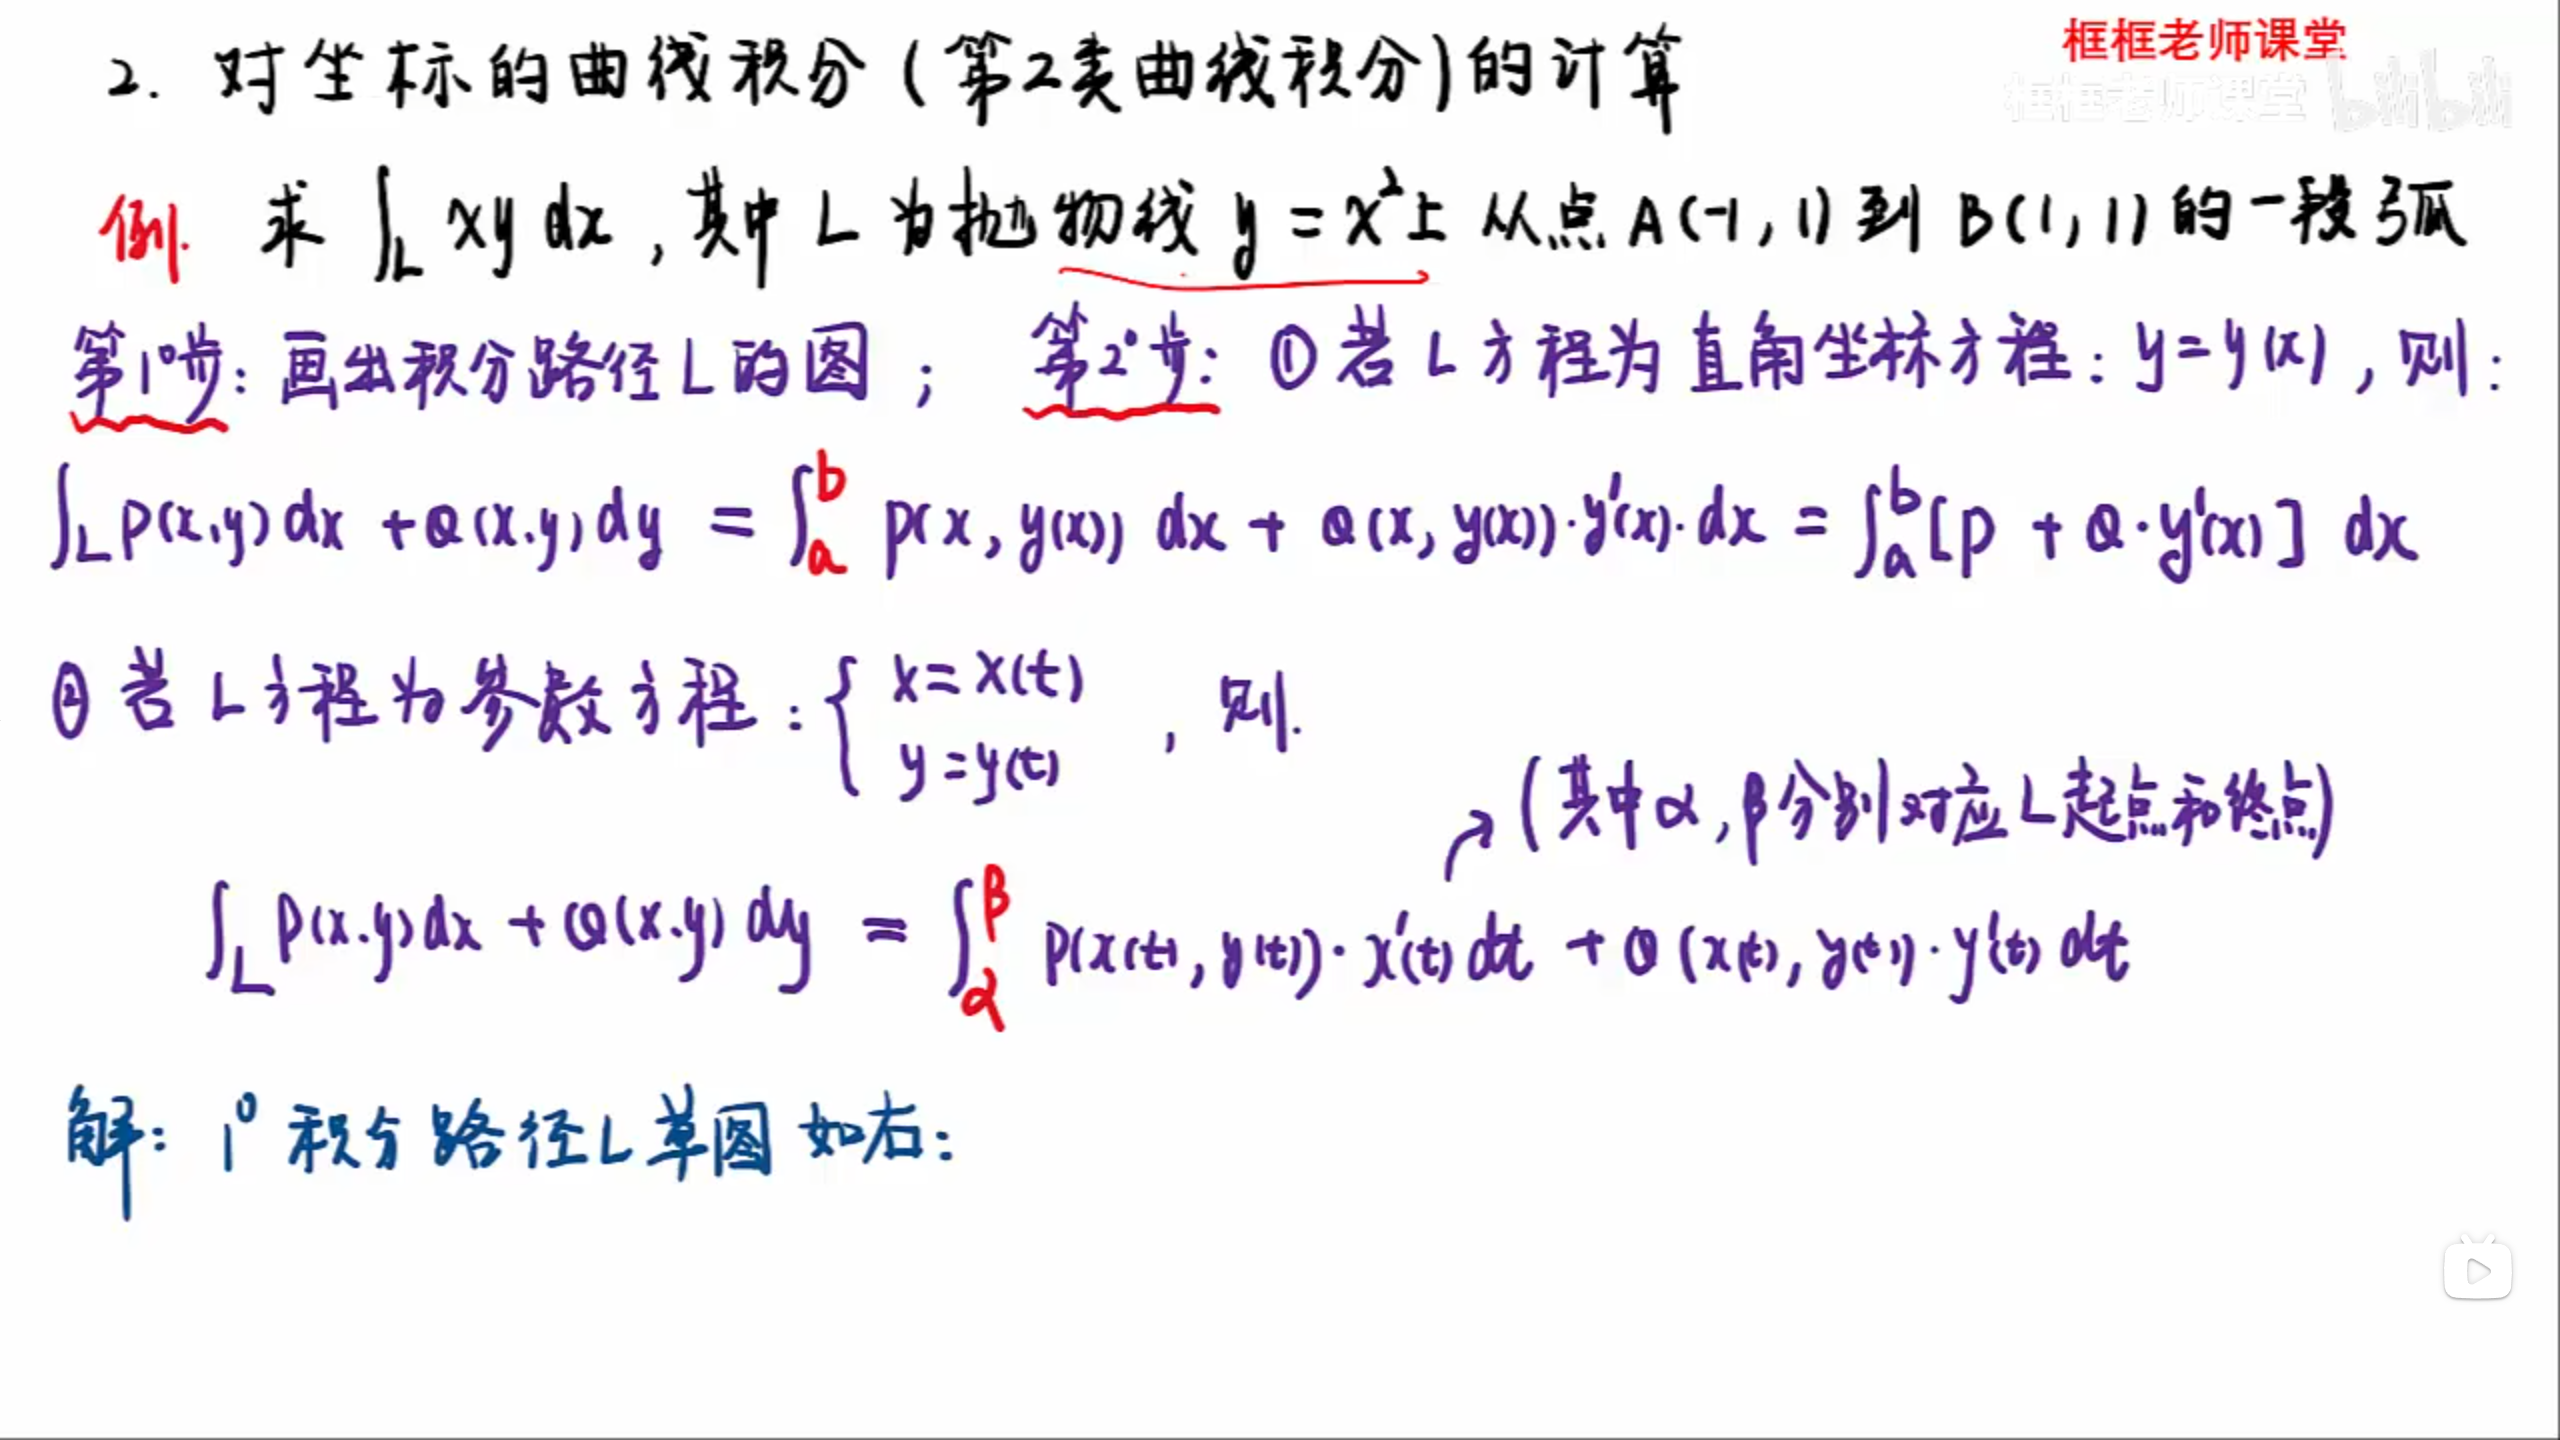 框框老师课堂
框框老师课堂 bilibili
2. 对坐标的曲线积分(第2类曲线积分)的计算
例. 求 ∫_L xy dx, 其中 L 为抛物线 y = x² 上 从点 A(-1, 1) 到 B(1, 1) 的一段弧
第1°步: 画出积分路径L的图 ; 第2°步: ① 若 L 方程为直角坐标方程: y=y(x), 则:
∫_L P(x,y)dx + Q(x,y)dy = ∫_a^b P(x, y(x)) dx + Q(x, y(x))·y'(x)·dx = ∫_a^b [P + Q·y'(x)] dx
② 若 L 方程为参数方程: { x = x(t) y = y(t) , 则.
(其中α, β分别对应L起点和终点)
∫_L P(x.y)dx + Q(x.y)dy = ∫_α^β P(x(t), y(t))·x'(t)dt + Q(x(t), y(t))·y'(t)dt
解: 1° 积分路径L草图如右: